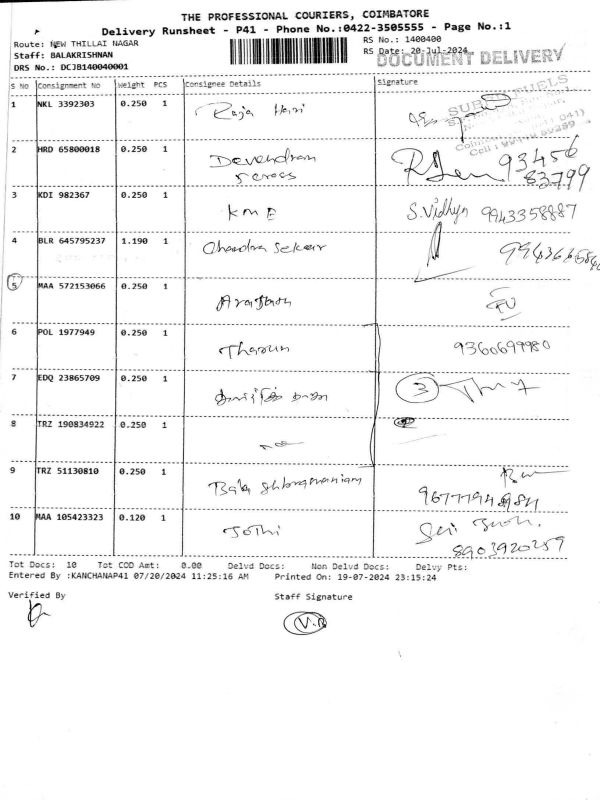 THE PROFESSIONAL COURIERS, COIMBATORE
Delivery Runsheet - P41 - Phone No.:0422-3505555 - Page No.:1
Route: NEW THILLAI NAGAR
RS No.: 1400400
Staff: BALAKRISHNAN
RS Date: 20-Jul-2024
DOCUMENT DELIVERY
DRS No.: DCJB140040001
S No Consignment No Weight PCS Consignee Details Signature
1 NKL 3392303 0.250 1 Raja Hari
2 HRD 65800018 0.250 1 Devendran 93456
83799
3 KDI 982367 0.250 1 KME S.Vidhya 9943358887
4 BLR 645795237 1.190 1 Chandra Sekar
5 MAA 572153066 0.250 1
6 POL 1977949 0.250 1 Tharun 9360699980
7 EDQ 23865709 0.250 1 3
8 TRZ 190834922 0.250 1
9 TRZ 51130810 0.250 1 Bala Shbramaniam
10 MAA 105423323 0.120 1 Jothi
8903920259
Tot Docs: 10 Tot COD Amt: 0.00 Delvd Docs: Non Delvd Docs: Delvy Pts:
Entered By :KANCHANAP41 07/20/2024 11:25:16 AM Printed On: 19-07-2024 23:15:24
Verified By Staff Signature
V.B